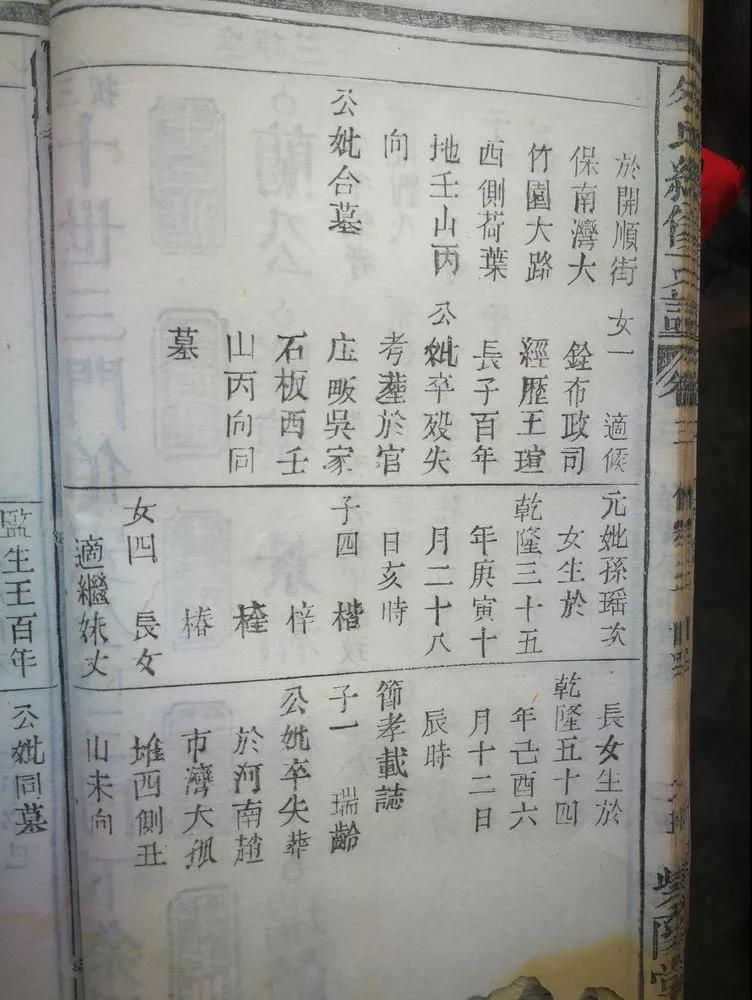 於開順街
保南灣大
竹園大路
西側荷葉
地壬山丙
向
公妣合墓
女一 適候
銓布政司
經歷王瑄
長子百年
公妣卒殁失
考塟於官
庄畈吳家
石板西壬
山丙向同
墓
元妣孫瑶次
女生於
乾隆三十五
年庚寅十
月二十八
日亥時
子四 楷
梓
楏
椿
女四 長女
適繼妹丈
長女生於
乾隆五十四
年己酉六
月十二日
辰時
節孝載誌
子一 瑞齡
公妣卒失葬
於河南趙
市灣大孤
堆西側丑
山未向
監生王百年
公妣同墓